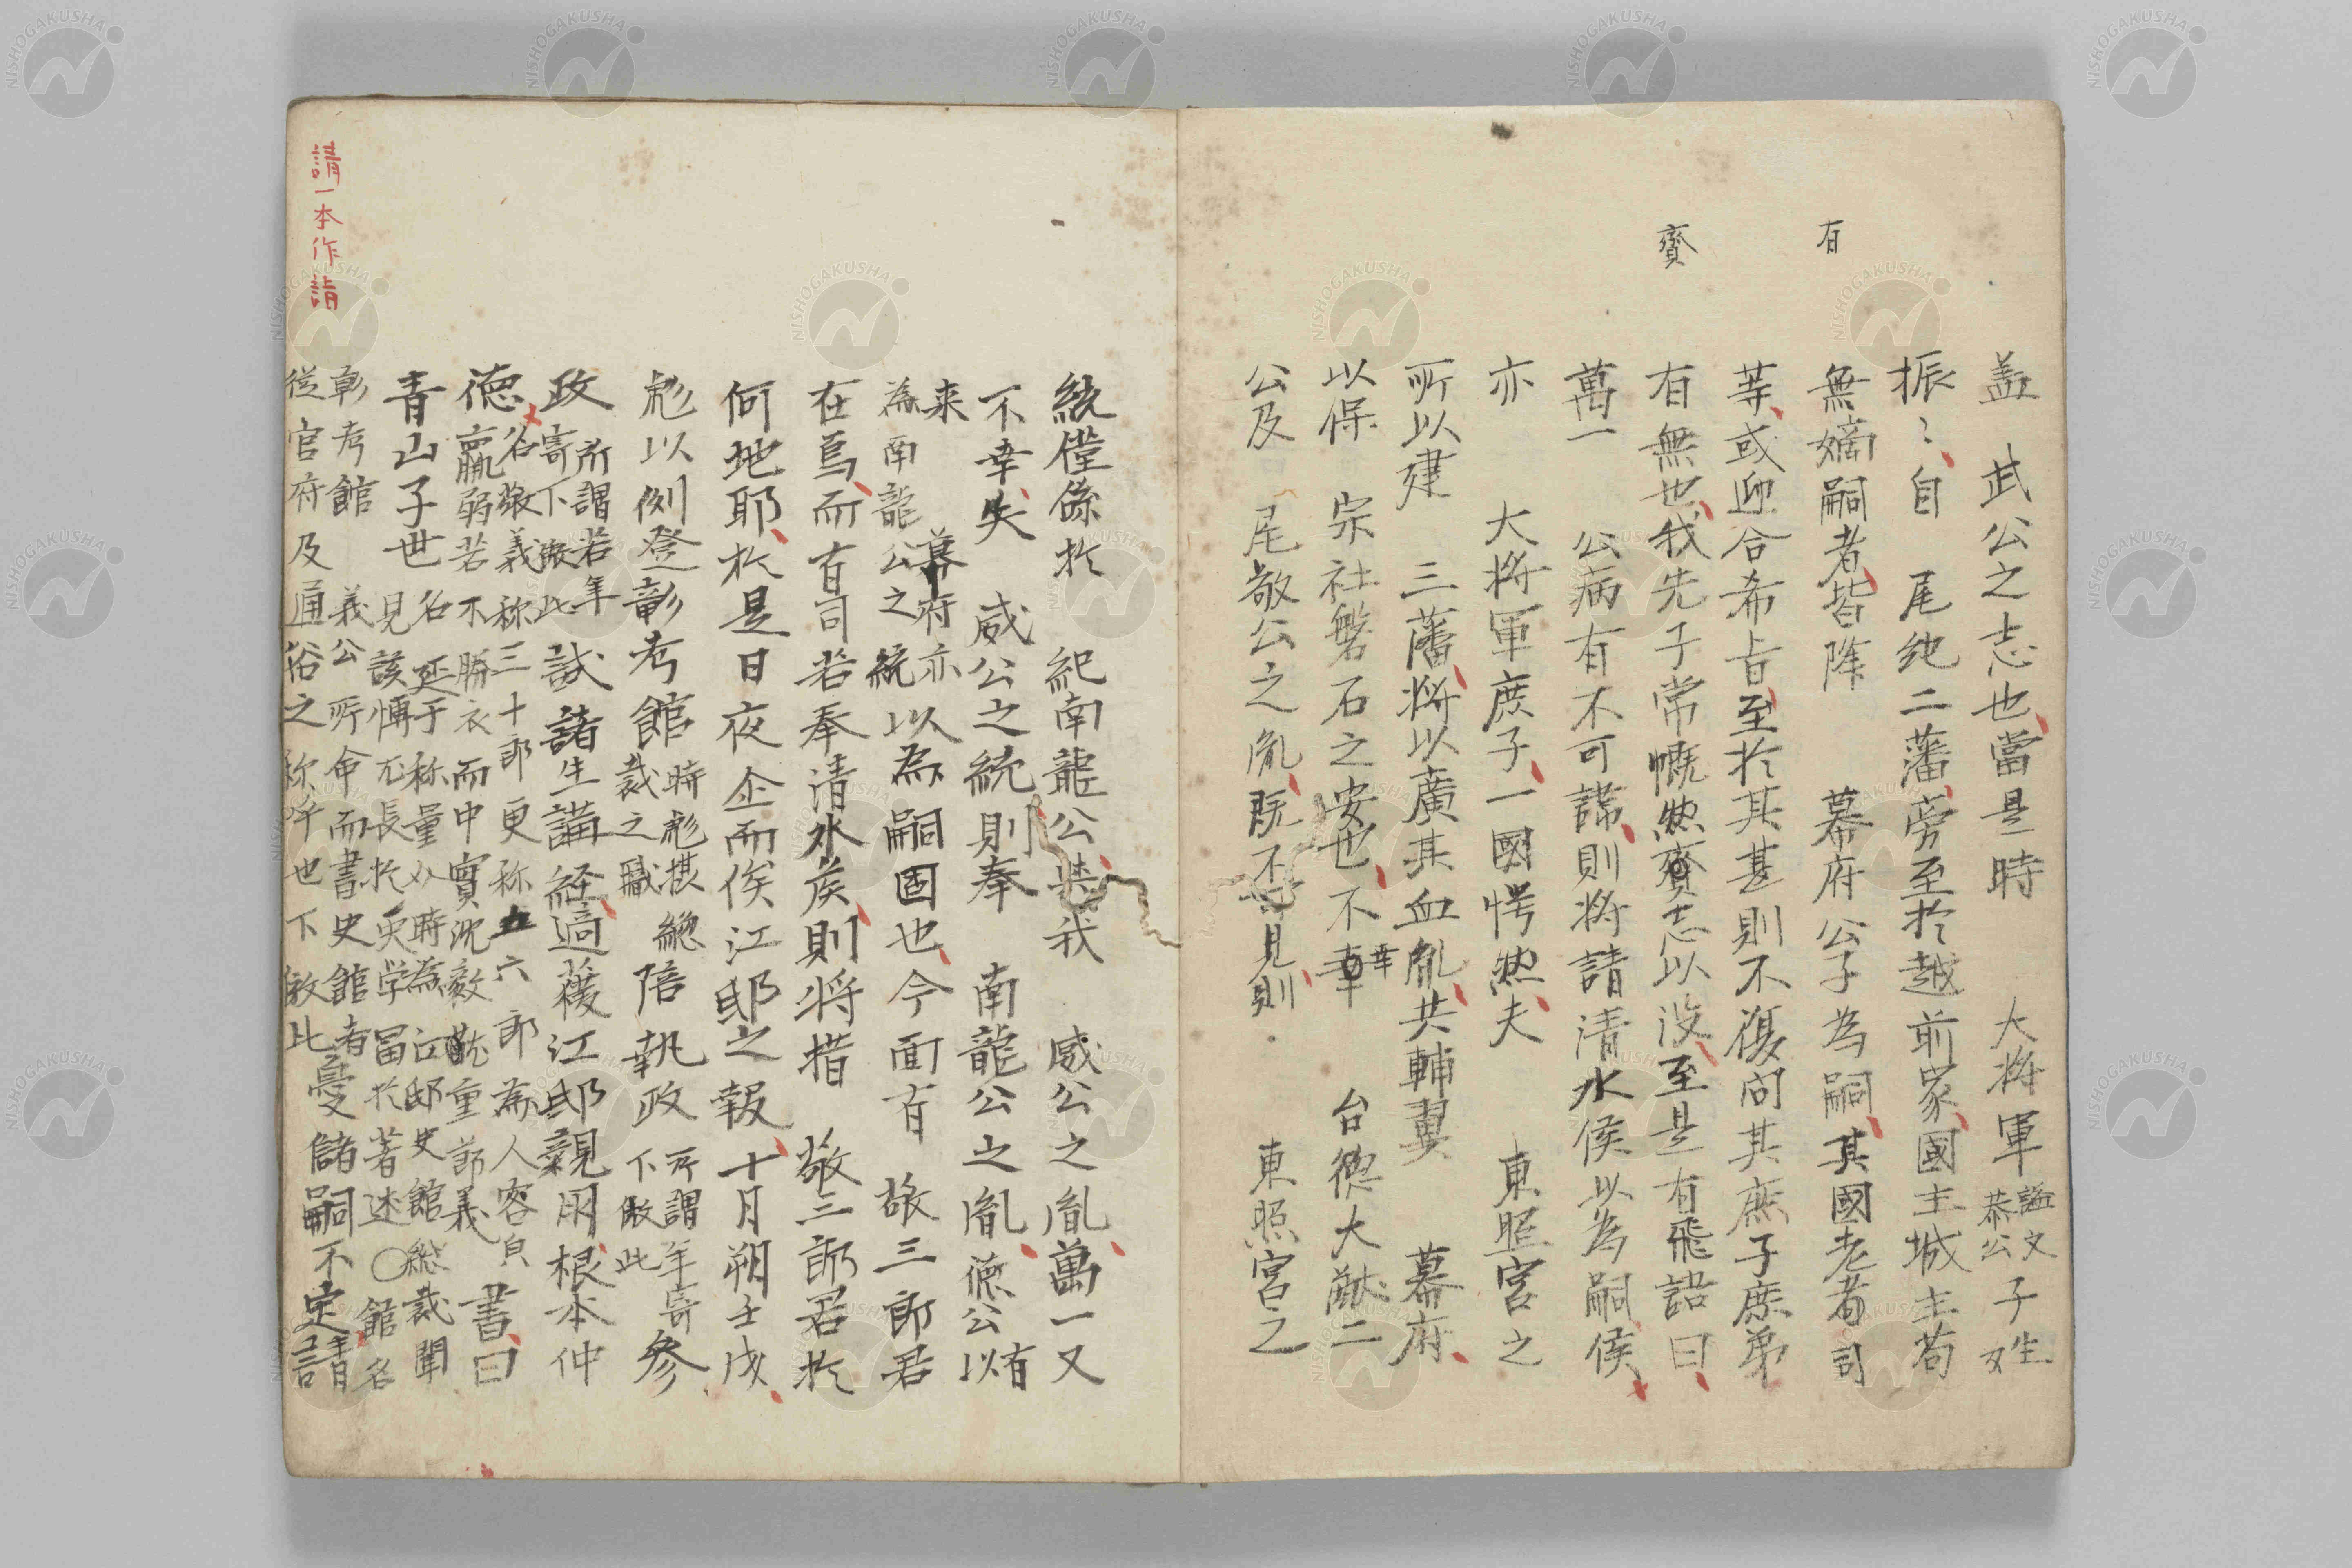 有
賫
盖 武公之志也當是時 大將軍謚文恭公子女生
振〻自 尾紀二藩旁至於越前家國主城主苟
無嫡嗣者皆降 幕府公子為嗣其國老有司
等或迎合希旨至於其甚則不復問其庶子庶弟
有無也我先子常慨然賫志以没至是有飛語曰
萬一 公病有不可諱則將請清水侯以為嗣侯
亦 大將軍庶子一國愕然夫 東照宮之
所以建 三藩將以廣其血胤共輔翼 幕府
以保 宗社磐石之安也不幸 台德大猷二
公及 尾敬公之胤既不見則 東照宮之
統僅係於 紀南龍公與我 威公之胤萬一又
不幸失 威公之統則奉 南龍公之胤德公以有
来 幕府亦為 南龍公之統以為嗣固也今面有 敬三郎君
在焉而有司若奉清水矦則将措 敬三郎君於
何地耶於是日夜企而俟江邸之報十月朔壬戌
彪以例登彰考館時彪摂總裁之職陪執政所謂年寄下倣此參
政所謂若年寄下倣此試諸生講経適葭江邸親朋根本仲
德名敬義称三十郎更称五六郎為人容皃羸弱若不勝衣而中實沈毅能重節義書曰
青山子世名延于称量介時為江邸史館総裁聞見該博尤長於吏学冨於著述○館名
彰考館 義公所命而書史館者從官府及通俗之称呼也下倣此憂儲嗣不定請
請一本作詣